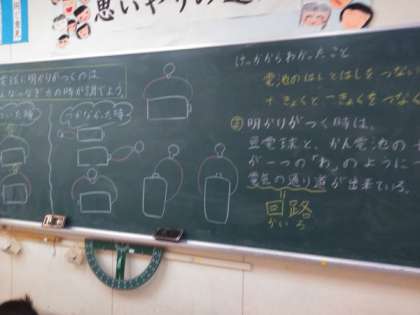 思いやりの
同じ意見
電球に明かりがつくのは
どんなつなぎ方の時か調べよう。
ついた時
つかなかった時
けっかからわかったこと
電池のはしとはしをつない
+きょくと-きょくをつなぐ
ま 明かりがつく時は、
豆電球と、かん電池の+
が一つの「わ」のように
電気の通り道が出来ている。
回路
かいろ